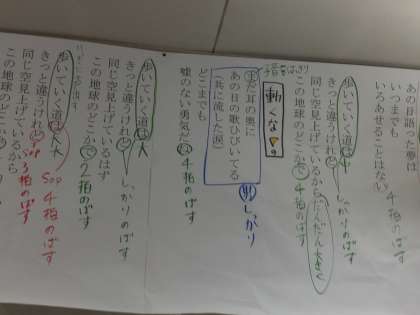 あの日語った夢は
いつまでも
4拍のばす
いろあせることはない
歩いていく道は
きっと違うけれど
しっかりのばす
同じ空見上げているから
だんだん大きく
この地球のどこかで
4拍のばす
動くな
まだ耳の奥に
あの日の歌ひびいてる
(共に流した涙)
男 しっかり
どこまでも
嘘のない勇気だけ
4拍のばす
歩いていく道は
きっと違うけれど
しっかりのばす
同じ空見上げているはず
この地球のどこかで
2拍のばす
歩いていく道は
きっと違うけれど
Sop 4拍のばす
同じ空見上げているから
3拍のばす
この地球のどこか